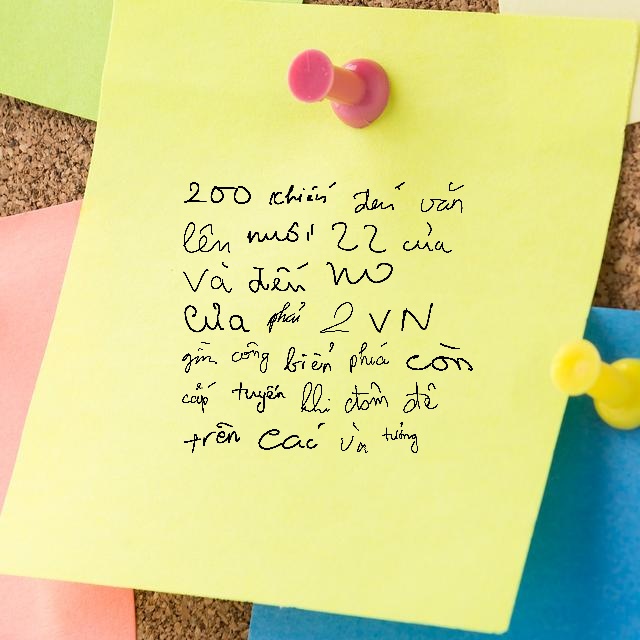 200 khiến đến văn
lên nuôi 22 của
và đến NO
Của phải 2 VN
gìn công biển phía còn
cấp tuyến khi đồm đê
trên các và tưởng